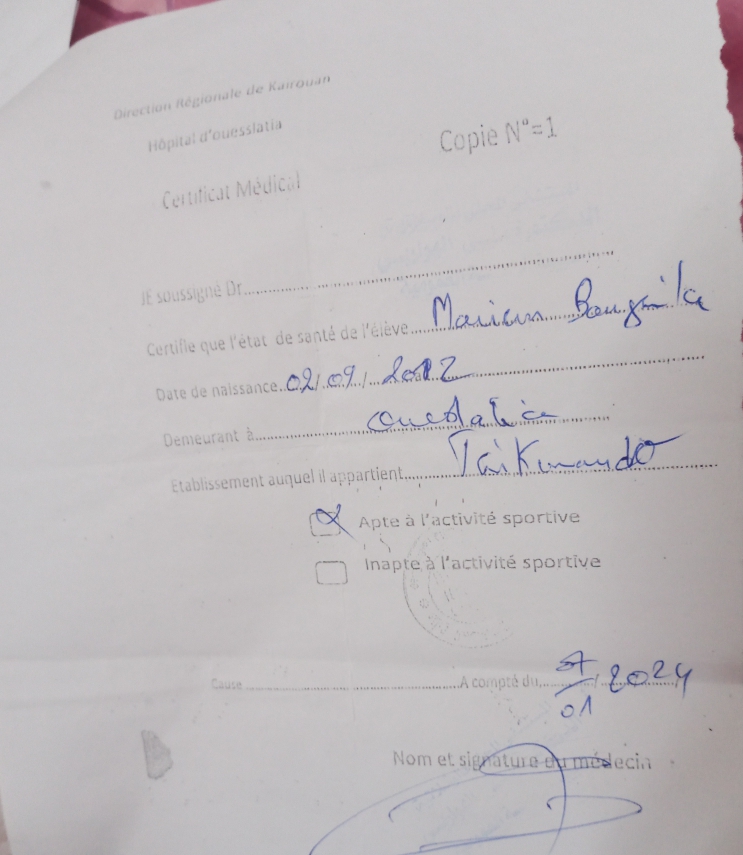 Direction Régionale de Kairouan
Hôpital d'ouesslatia
Copie N°=1
Certificat Médical
JE soussigné Dr
Certifie que l'état de santé de l'élève Mariem
Date de naissance 02/09/2012
Demeurant à
Etablissement auquel il appartient Taikwando
Apte à l'activité sportive
Inapte à l'activité sportive
Cause A compté du 2024
Nom et signature du médecin